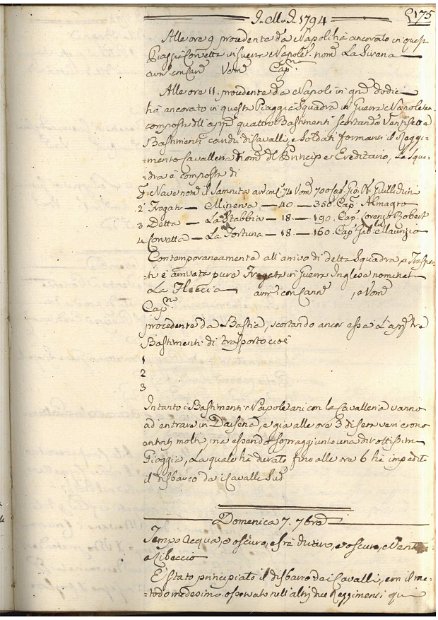 J. M. J. 1794
175
Alle ore 9 procedente da Napoli ha ancorato in questa
Piaggia Corvetta in Guerra Napolet. nom. La Sirena
Cap.
Alle ore 11. procedente da Napoli in
ha ancorato in questa Piaggia Squadra in Guerra Napoletana
composta quattro Bastimenti scortando Vantisette
Bastimenti con di Cavalli, e Soldati formanti il Reggi-
mento Cavalleria nom. del Principe Ereditario, La Squa-
dra è composta di
Nave nom. il Sannita 74
2 Fragata — Minerva — 40 — 350 Cap. Almagro
3 Detta — La — 18 — 190. Cap. Lorenzo Robert
4 Corvetta — La Fortuna — 18 — 160. Cap.
Contemporaneamente all'arrivo di detta Squadra, e Traspor-
ti è arrivata pure Fregata in Guerra Inglese nominat.
La Fleccia con Cann. , e Uom.
Cap.
procedente da Bastia, scortando
Bastimenti di trasporto cioè
1
2
3
Intanto i Bastimenti Napoletani con la Cavalleria vanno
ad entrare in Darsena, e già alle ore 3 di sera
entrati molti, ma essendo sopraggiunto una dirottissima
Pioggia, La quale ha durato fino alle ore 6 ha impedit.
il disbarco dei Cavalli
Domenica 7. 7bre
Tempo acqua, e oscuro, e oscuro, e Vento
a Libeccio
È Stato principiato il disbarco dei Cavalli, con il me-
todo medesimo osservato nell'altri due Reggimenti qui